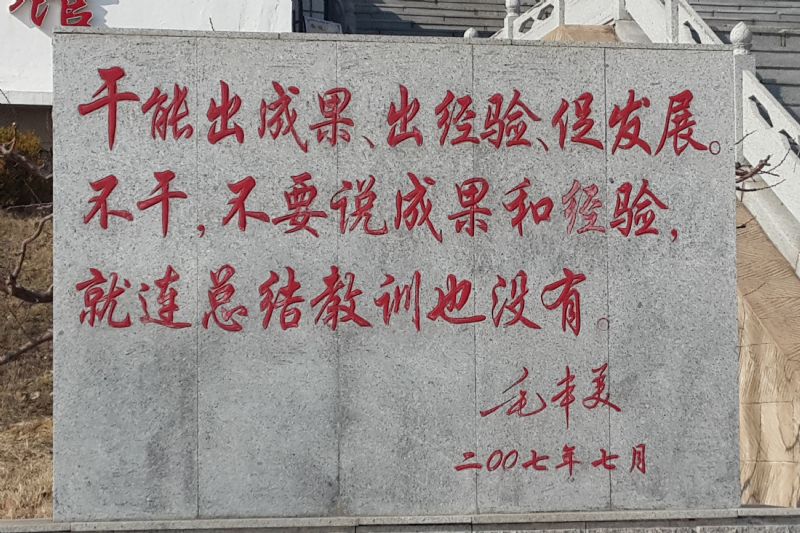 馆
干能出成果、出经验、促发展。
不干,不要说成果和经验,
就连总结教训也没有。
毛丰美
二00七年七月